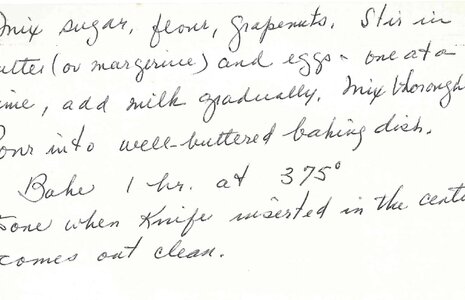 mix sugar, flour, grapenuts. Stir in
utter (or margerine) and eggs - one at a
ime, add milk gradually. Mix thorough
Pour into well-buttered baking dish.
Bake 1 hr. at 375°
one when Knife inserted in the cente
comes out clean.